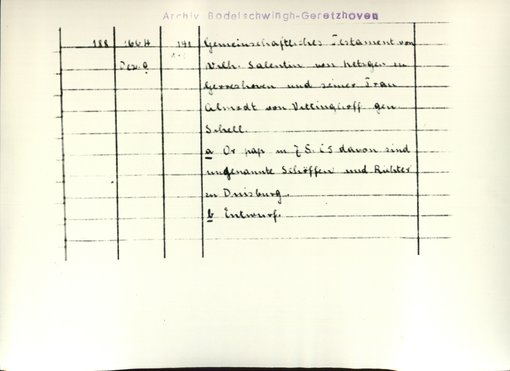 Archiv Bodelschwingh-Geretzhoven
188 1664 141 Gemeinschaftliches Testament von
Dez. 9 Wilh. Salentin von Netzgen zu
Gerreshoven und seiner Frau
von Vittinghoff gen
Schell.
a Or pap m 7 S. davon sind
ungenannte Schöffen und Richter
zu Duisburg.
b Entwurf.